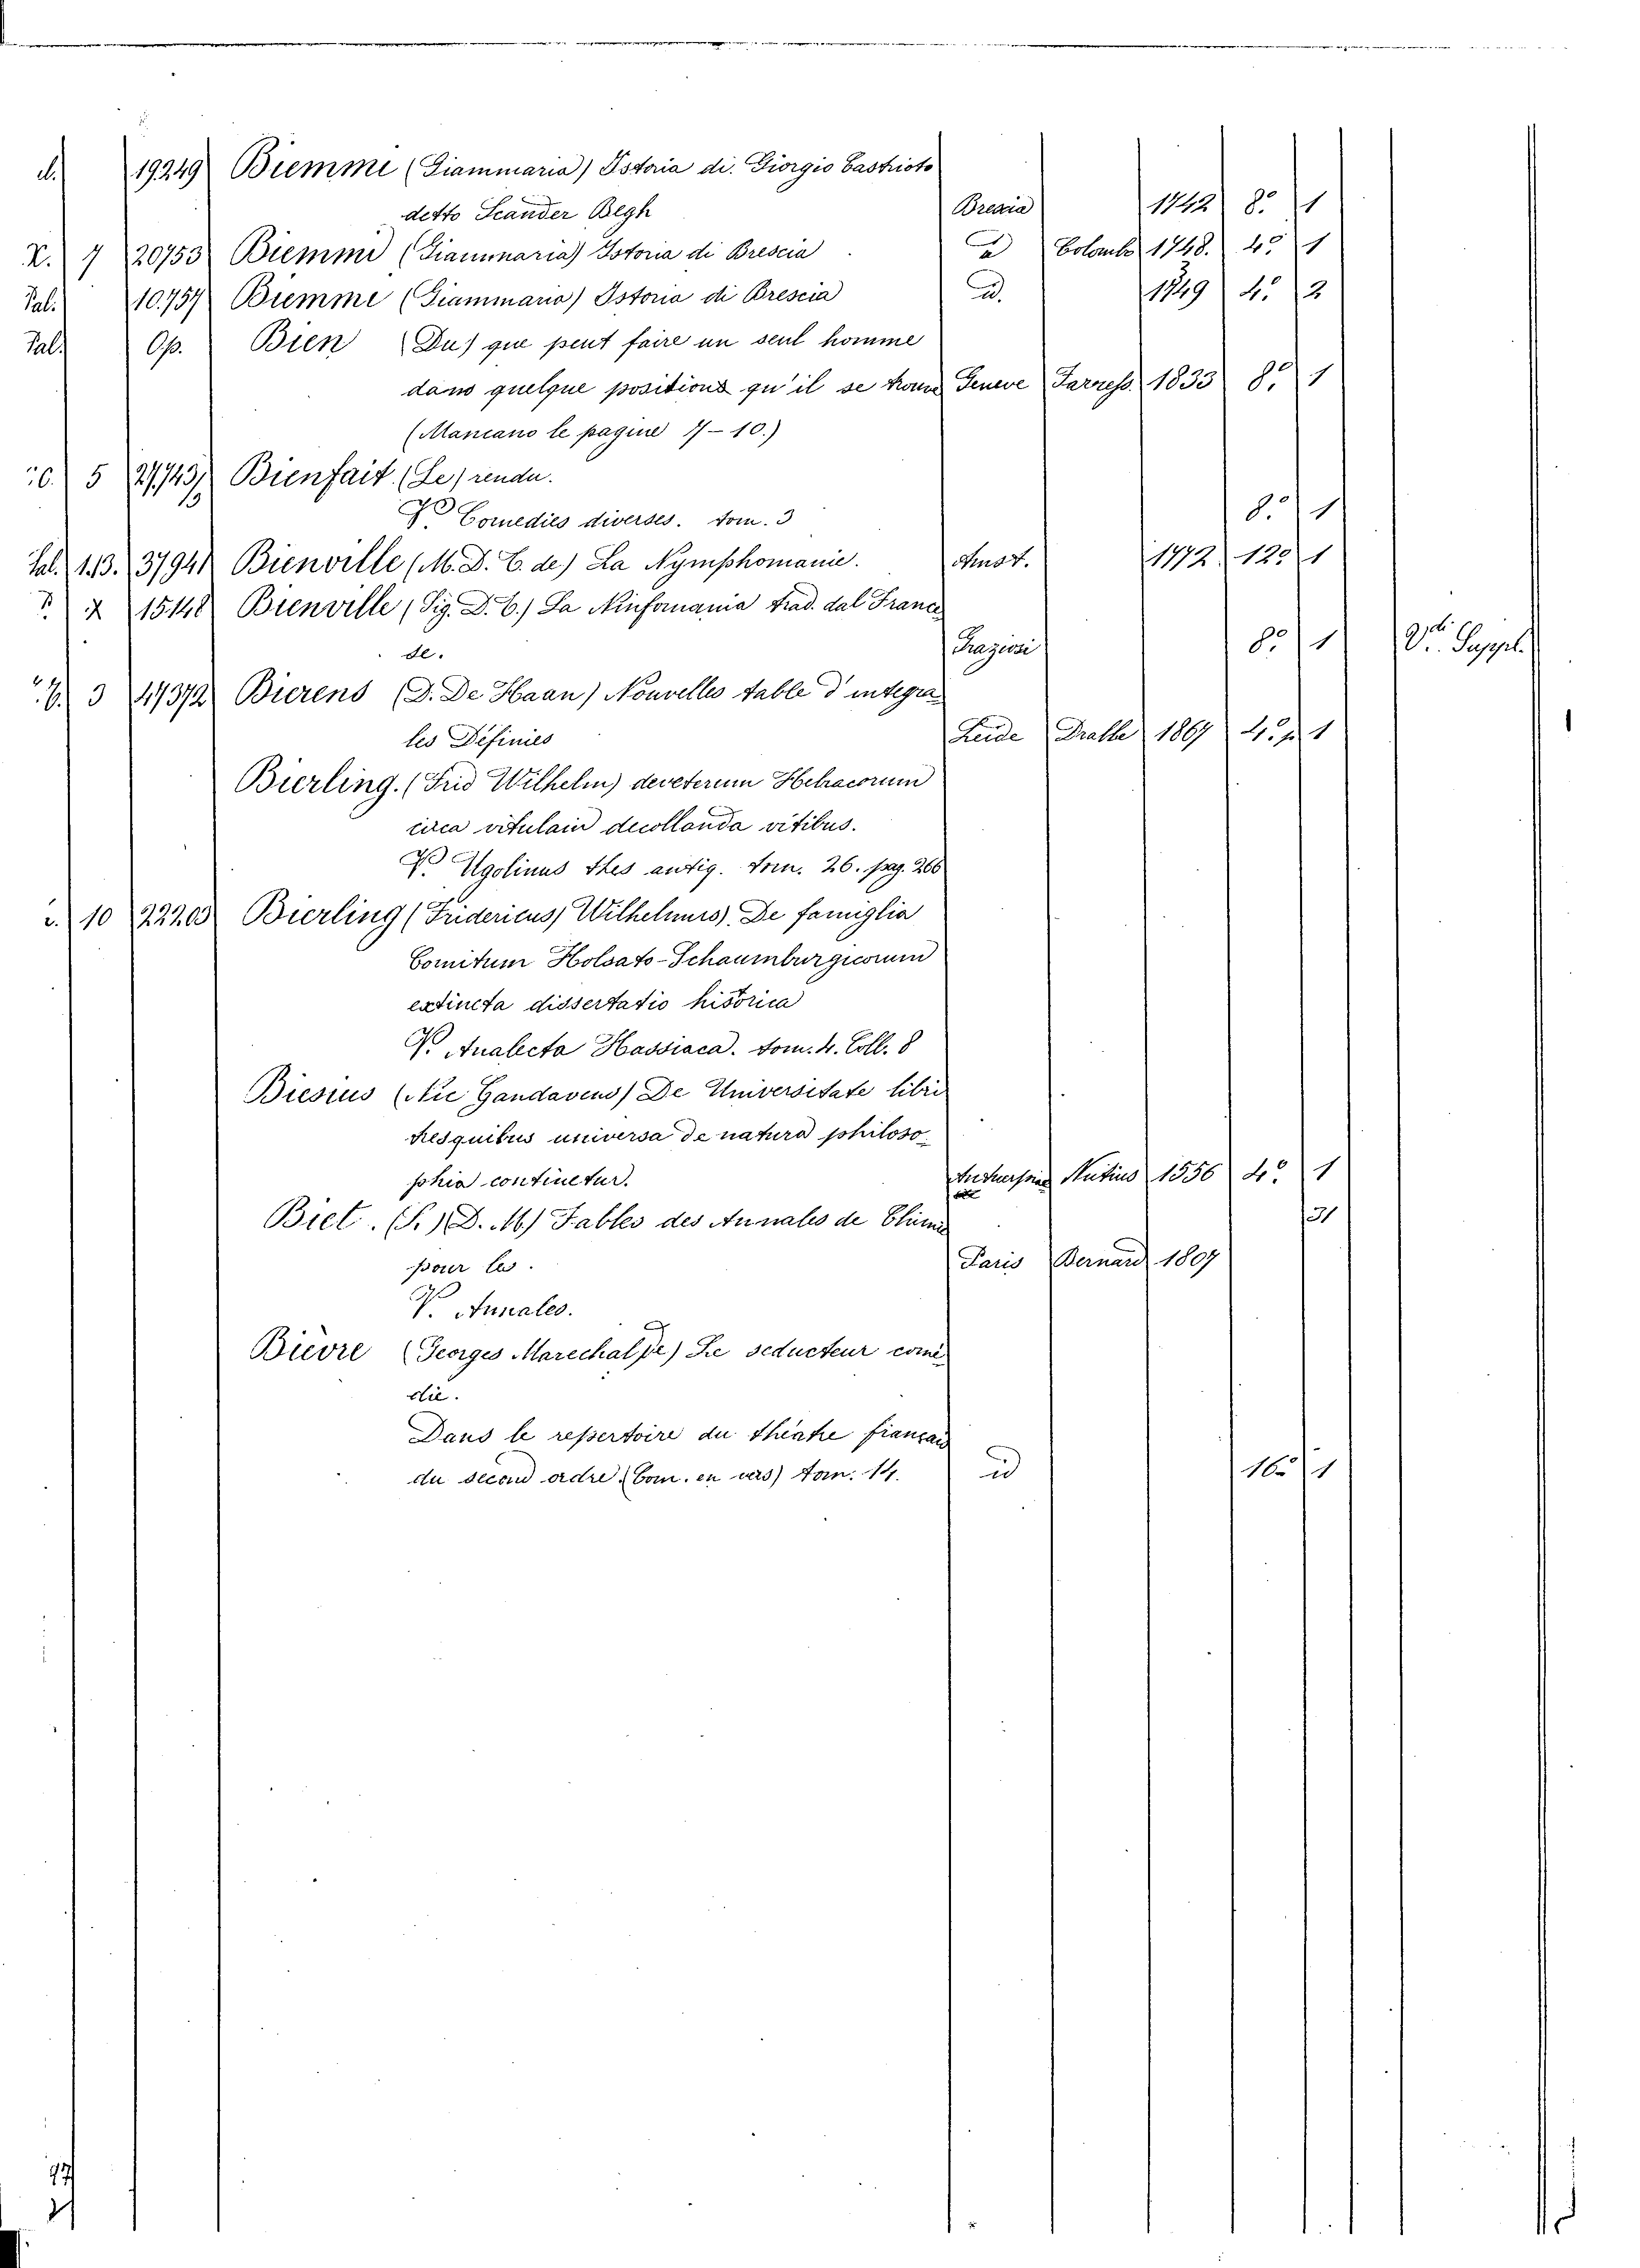 d. 19249 Biemmi (Giammaria) Istoria di Giorgio Castrioto
detto Scander Begh Brescia 1742 8.° 1
X. 7 20753 Biemmi (Giammaria) Istoria di Brescia Colombo 1748. 4.° 1
Pal. 10757 Biemmi (Giammaria) Istoria di Brescia id. 1749 4.° 2
Pal. Op. Bien (Du) que peut faire un seul homme
dans quelque positions qu'il se trouve Geneve Farness. 1833 8.° 1
(Mancano le pagine 7-10.)
C. 5 Bienfait (Le) rendu.
V. Comedies diverses. tom. 3 8.° 1
Pal. 113. 37941 Bienville (M. D. C. de) La Nymphomanie. Amst. 1772. 12.° 1
X 15148 Bienville (Sig. D. C.) La Ninfomania trad. dal France
se. Grazioni 8.° 1 V.di Suppl.
3 47372 Bierens (D. De Haan) Nouvelles table d'integra
les Définies Leide Dralle 1867 4.° p. 1
Bierling. (Frid Wilhelm) de veterum Hebraeorum
circa vitulam decollanda vitibus.
V. Ugolinus thes antiq. tom. 26. pag. 266
10 22203 Bierling (Fridericus Wilhelmus). De famiglia
Comitum Holsato-Schaumburgicorum
extincta dissertatio hisorica
V. Analecta Hassiaca. tom. 4. Coll. 8
Biesius (Nic Gandavens) De Universitate libri
tres quibus universa de natura philoso
phia continetur. Antuerpiae Nutius 1556 4.° 1
Biet. (S.) D. M.) Tables des Annales de Chimie 31
pour les. Paris Bernard 1807
V. Annales.
Bièvre (Georges Marechal de) Le seducteur comé
die.
Dans le repertoire du théatre français
du second ordre (Com. en vers) tom. 14. id 16.° 1
97